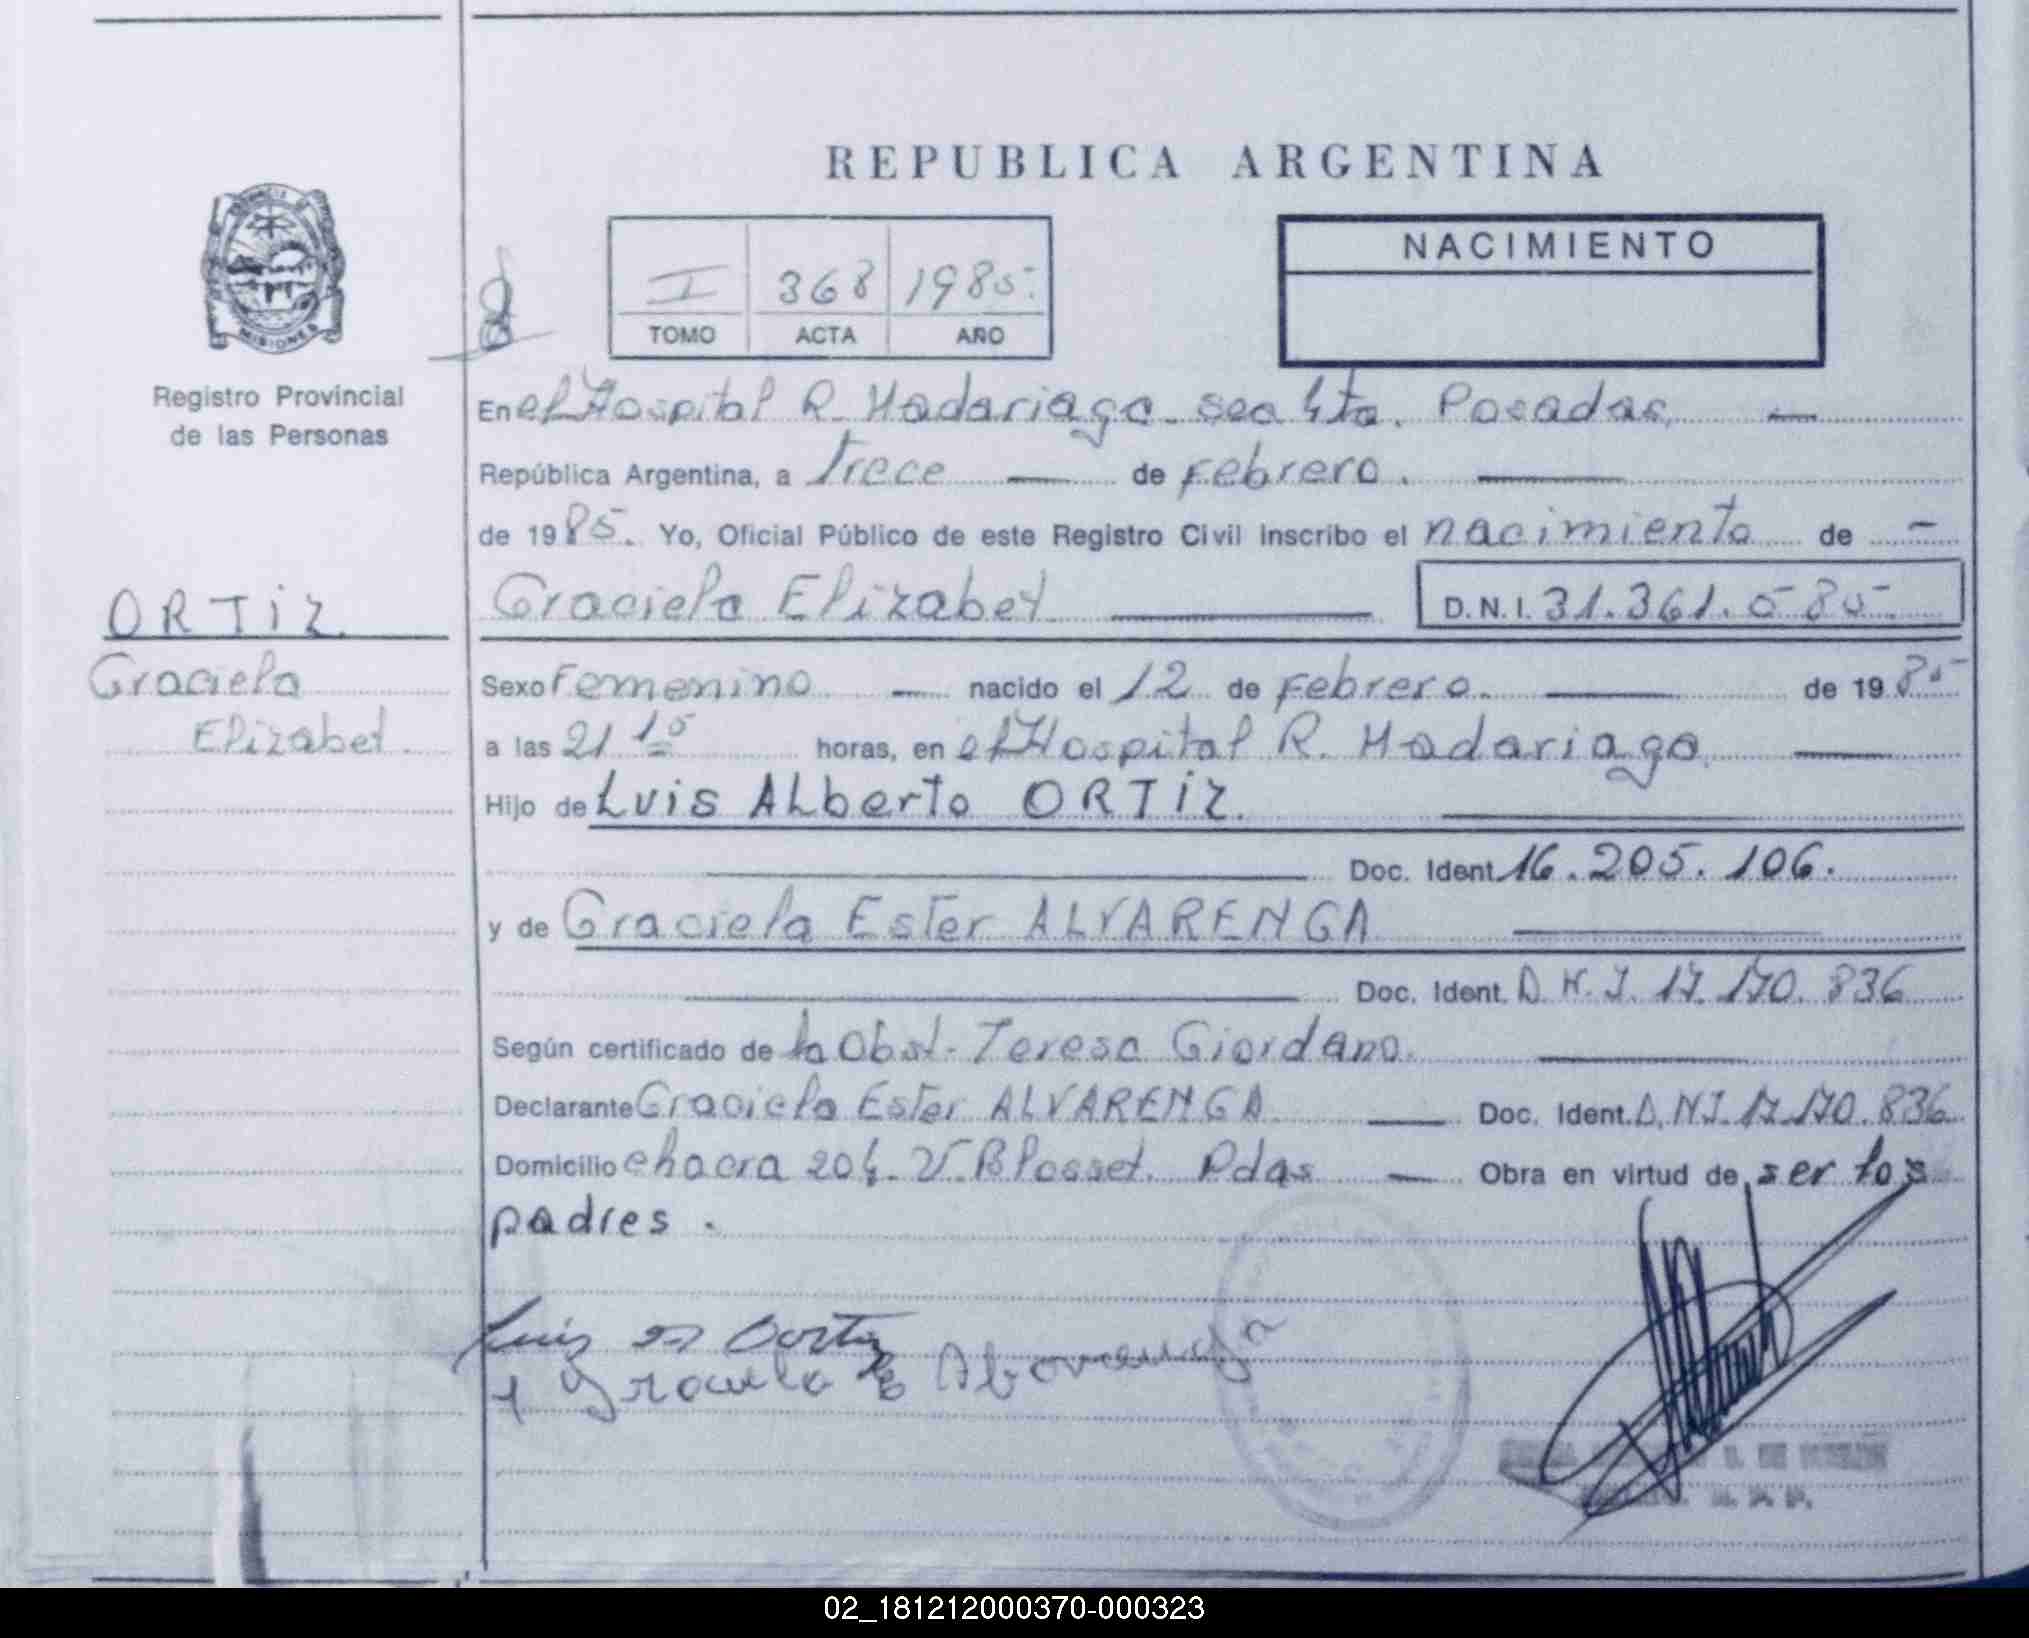 REPUBLICA ARGENTINA
NACIMIENTO
I 368 1985.
TOMO ACTA AÑO
MISIONES
Registro Provincial
de las Personas
En el Hospital R. Madariaga. sec 4ta. Posadas. —
República Argentina, a Trece — de Febrero. —
de 1985. Yo, Oficial Público de este Registro Civil inscribo el nacimiento de —
Graciela Elizabet — D.N.I. 31.361.585.
ORTIZ
Graciela
Elizabet.
Sexo Femenino — nacido el 12 de Febrero. — de 1985
a las 21 15 horas, en el Hospital R. Madariaga. —
Hijo de Luis Alberto ORTIZ. —
— Doc. Ident. 16.205.106.
y de Graciela Ester ALVARENGA —
— Doc. Ident. D.N.I. 17.170.836
Según certificado de la Obst. Teresa Giordano. —
Declarante Graciela Ester ALVARENGA — Doc. Ident. D.N.I. 17.170.836
Domicilio chacra 204. V. Blosset. Pdas — Obra en virtud de ser los
padres.
02_181212000370-000323